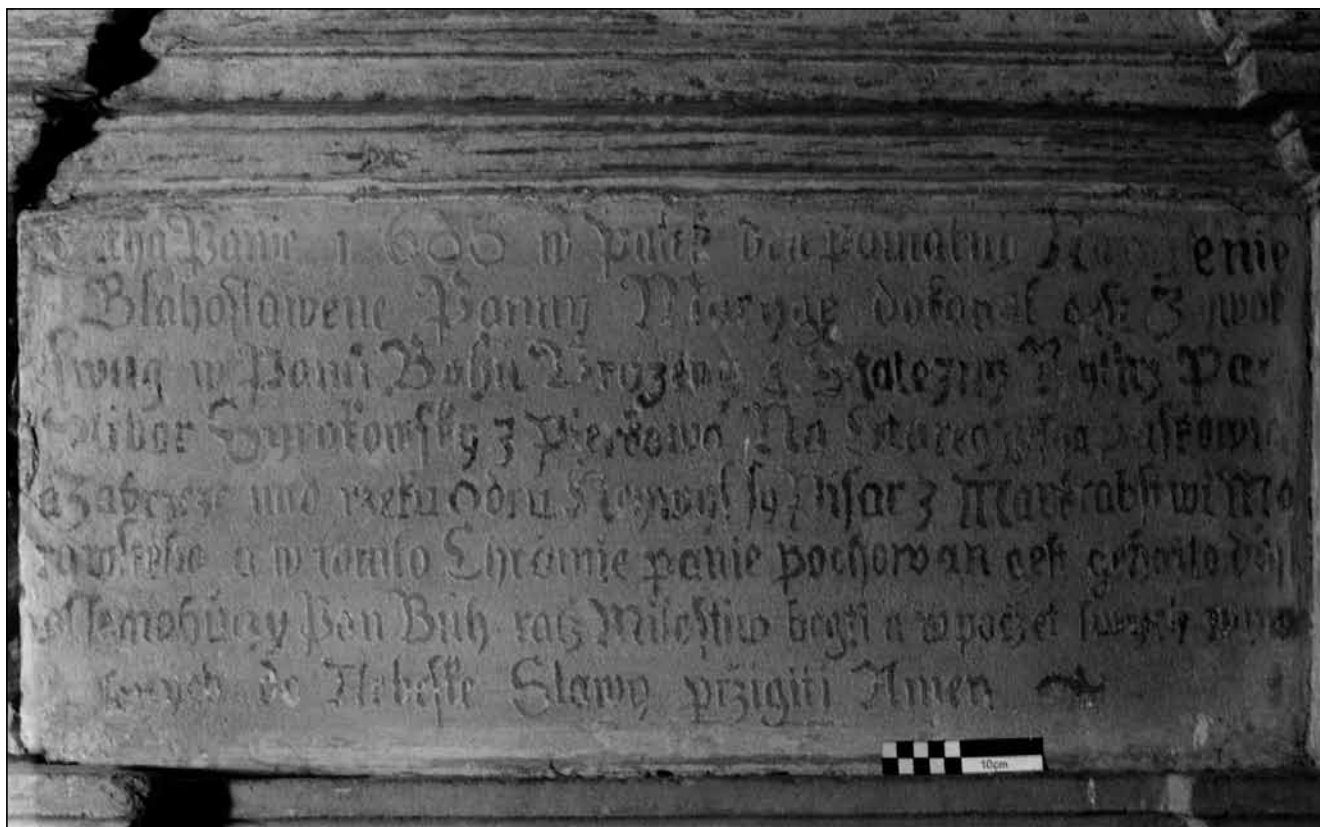 Letha Panie 1600 w Patek den pamatny Narozenie
Blahoslawene Panny Maryge dokonal gest Ziwot
swug w Panu Bohu Vrozeny a Statczny Rytirz Pan
Ctibor Syrakowsky z Pierkowa Na
a Zabrzeze nad rzeku Odru Pisar z Markrabstwi Mo
rawskeho a w tomto Chramie panie pochowan gest gehozto dussi
wssemohuczy Pan Buh racz Milostiw beyti a w poczet swych wywo
lenych do Nebeske Slawy przigiti Amen
10cm